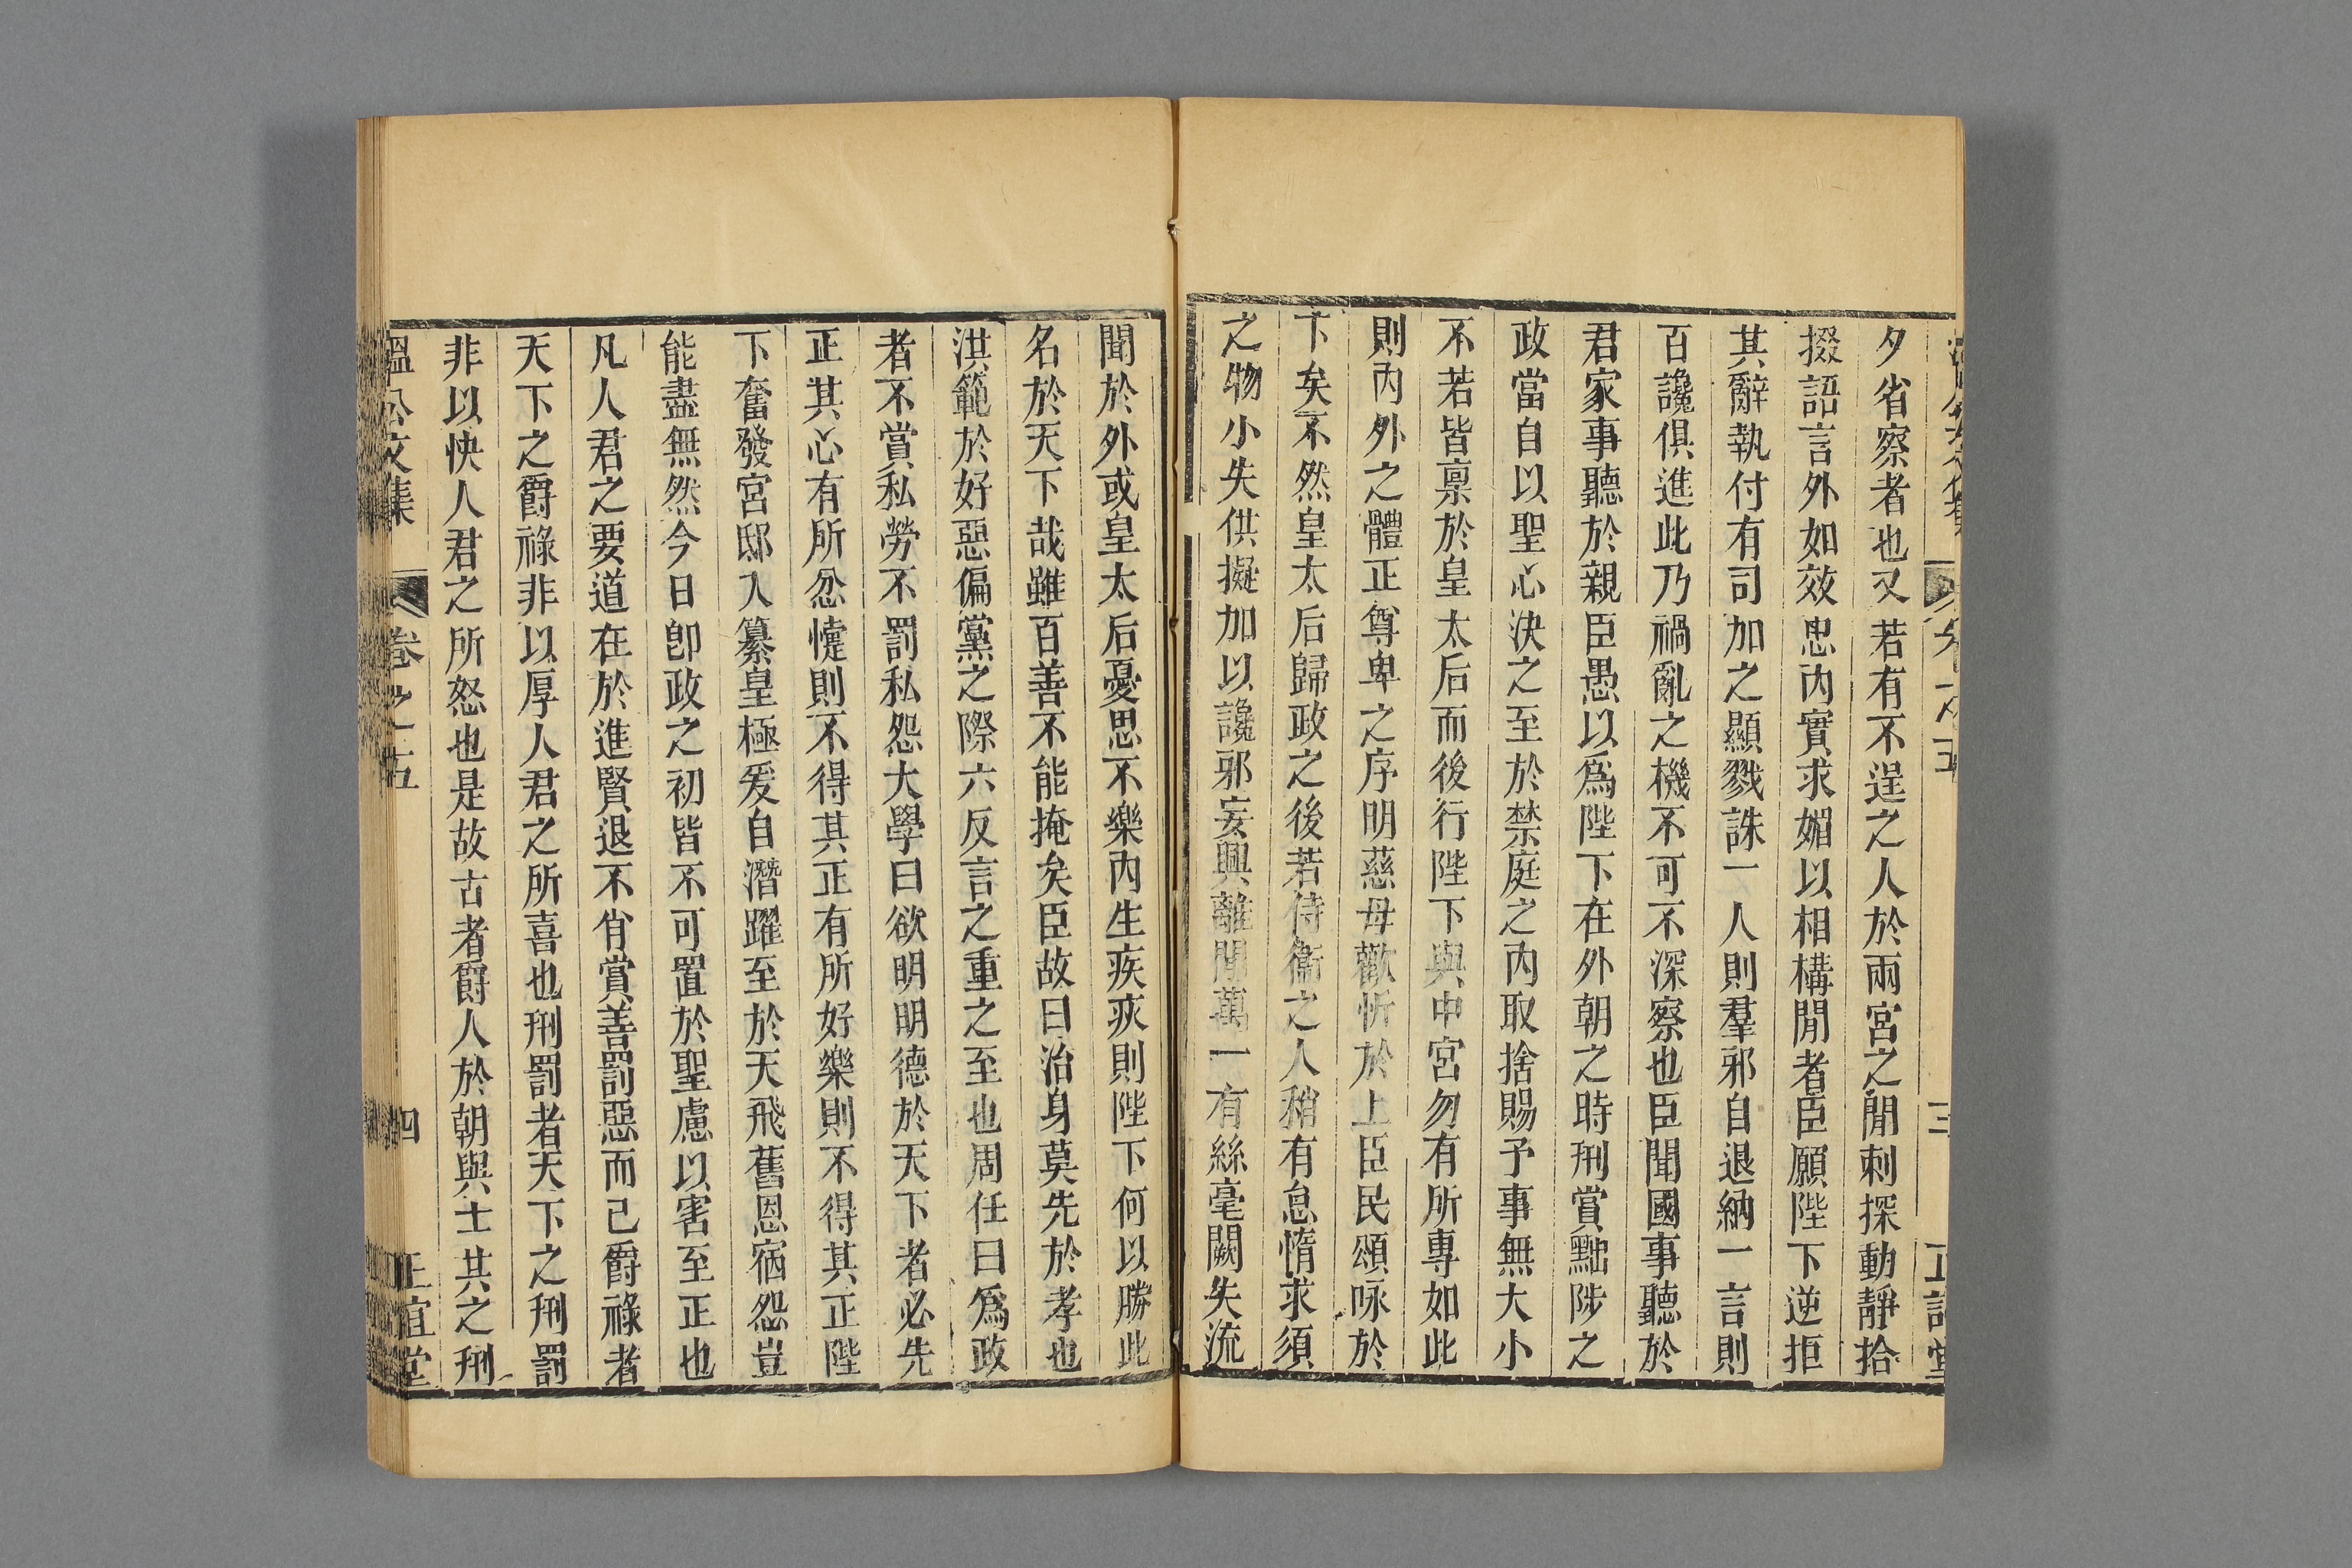 夕省察者也又若有不逞之人於兩宮之閒刺探動靜拾
掇語言外如效忠內實求媚以相構閒者臣願陛下逆拒
其辭執付有司加之顯戮誅一人則羣邪自退納一言則
百讒俱進此乃禍亂之機不可不深察也臣聞國事聽於
君家事聽於親臣愚以爲陛下在外朝之時刑賞黜陟之
政當自以聖心決之至於禁庭之內取捨賜予事無大小
不若皆稟於皇太后而後行陛下與中宮勿有所專如此
則內外之體正尊卑之序明慈母歡忻於上臣民頌咏於
下矣不然皇太后歸政之後若侍衞之人稍有怠惰求須
之物小失供擬加以讒邪妄興離閒萬一有絲毫闕失流
聞於外或皇太后憂思不樂內生疾疢則陛下何以勝此
名於天下哉雖百善不能掩矣臣故曰治身莫先於孝也
洪範於好惡偏黨之際六反言之重之至也周任曰爲政
者不賞私勞不罰私怨大學曰欲明明德於天下者必先
正其心有所忿懥則不得其正有所好樂則不得其正陛
下奮發宮邸入纂皇極爰自潛躍至於天飛舊恩宿怨豈
能盡無然今日卽政之初皆不可置於聖慮以害至正也
凡人君之要道在於進賢退不肖賞善罰惡而已爵祿者
天下之爵祿非以厚人君之所喜也刑罰者天下之刑罰
非以快人君之所怒也是故古者爵人於朝與士共之刑
溫公文集 卷之五 四 正誼堂